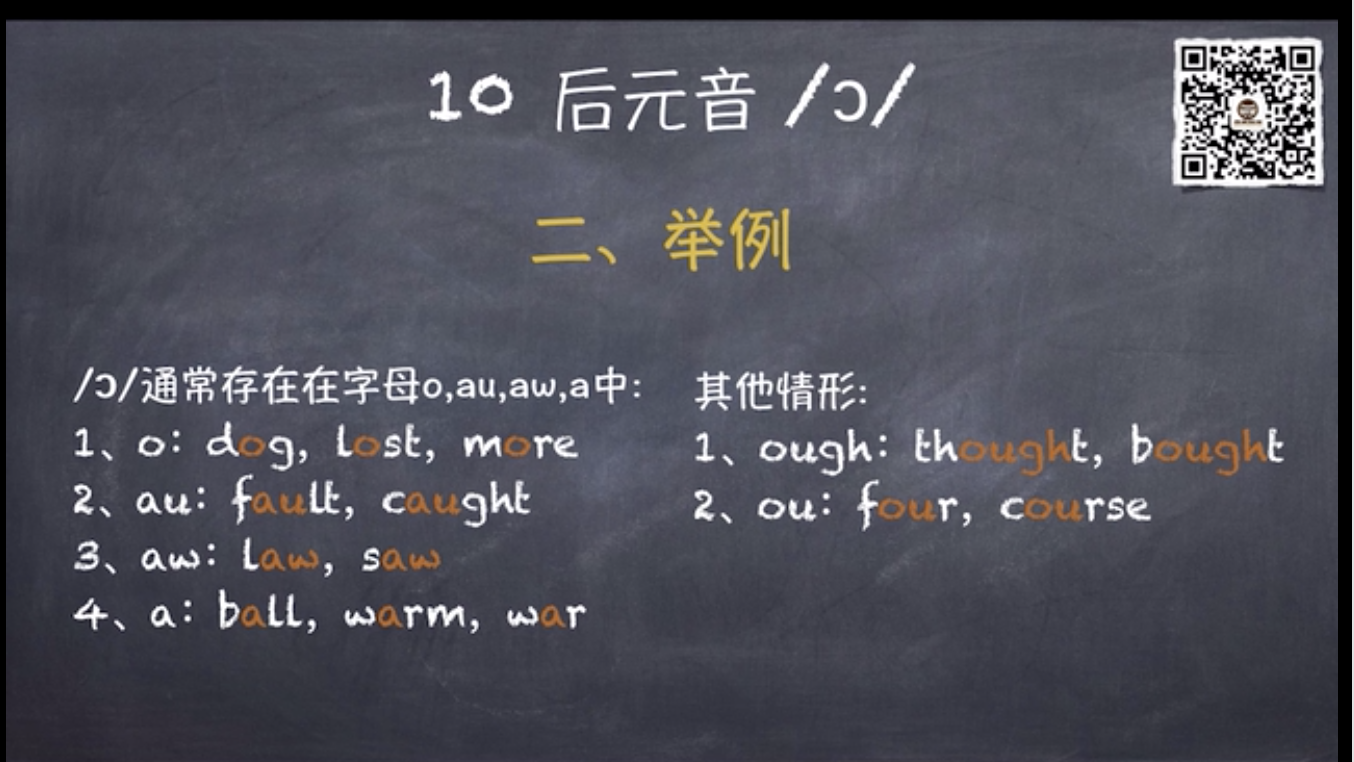 10 后元音 /ɔ/
二、举例
/ɔ/通常存在在字母o,au,aw,a中:
1、o: dog, lost, more
2、au: fault, caught
3、aw: law, saw
4、a: ball, warm, war
其他情形:
1、ough: thought, bought
2、ou: four, course